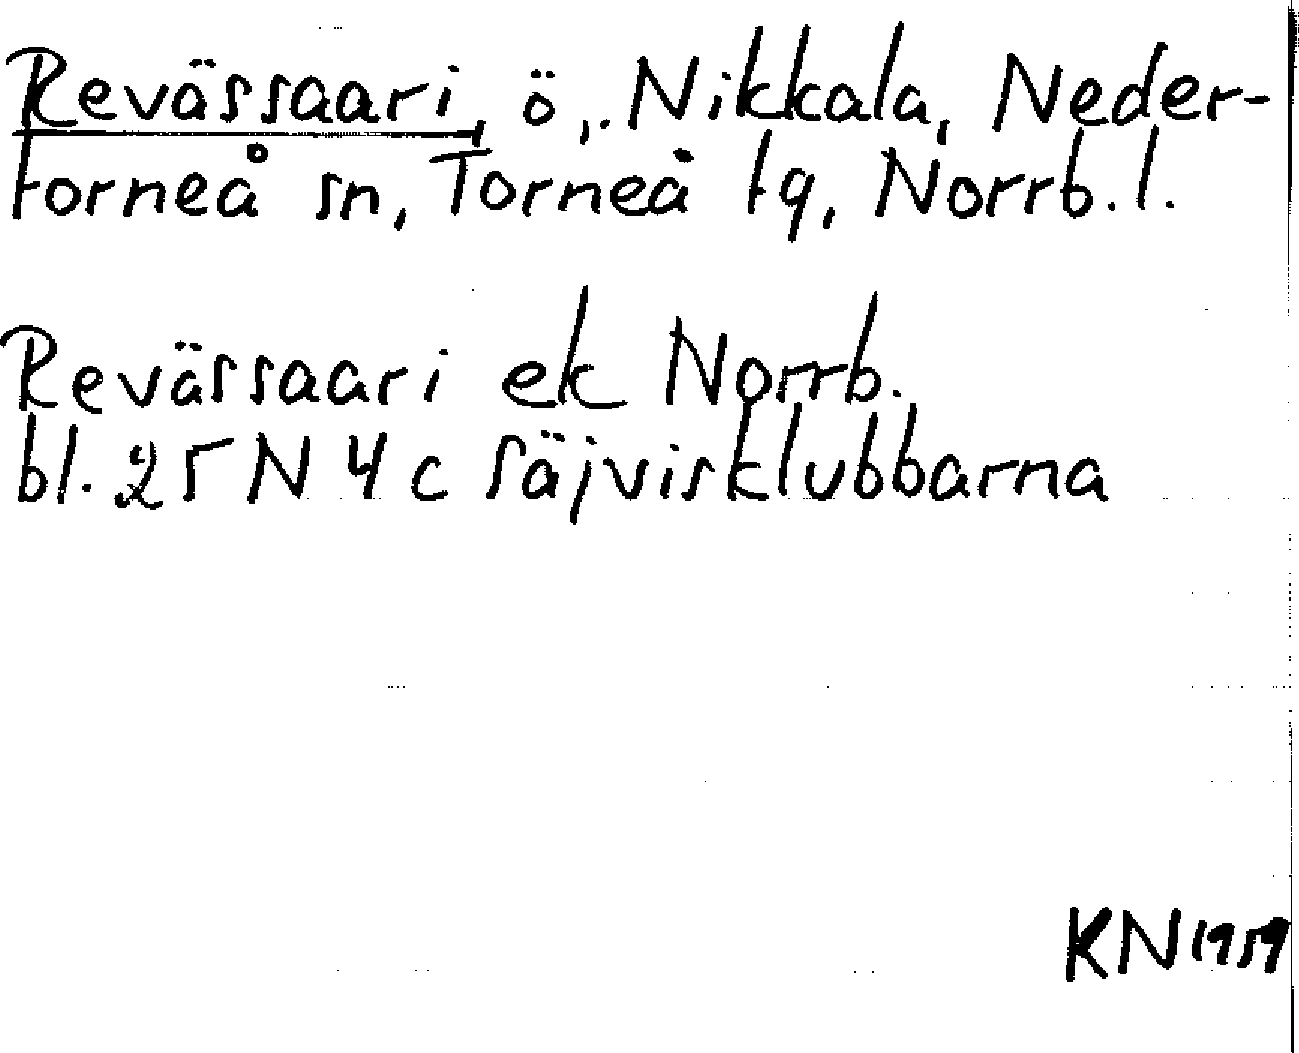 Revässaari, ö, Nikkala, Neder-
torneå sn, Torneå tg, Norrb. l.
Revässaari ek Norrb.
bl. 25 N 4 c Säjvisklubbarna
KN 1959